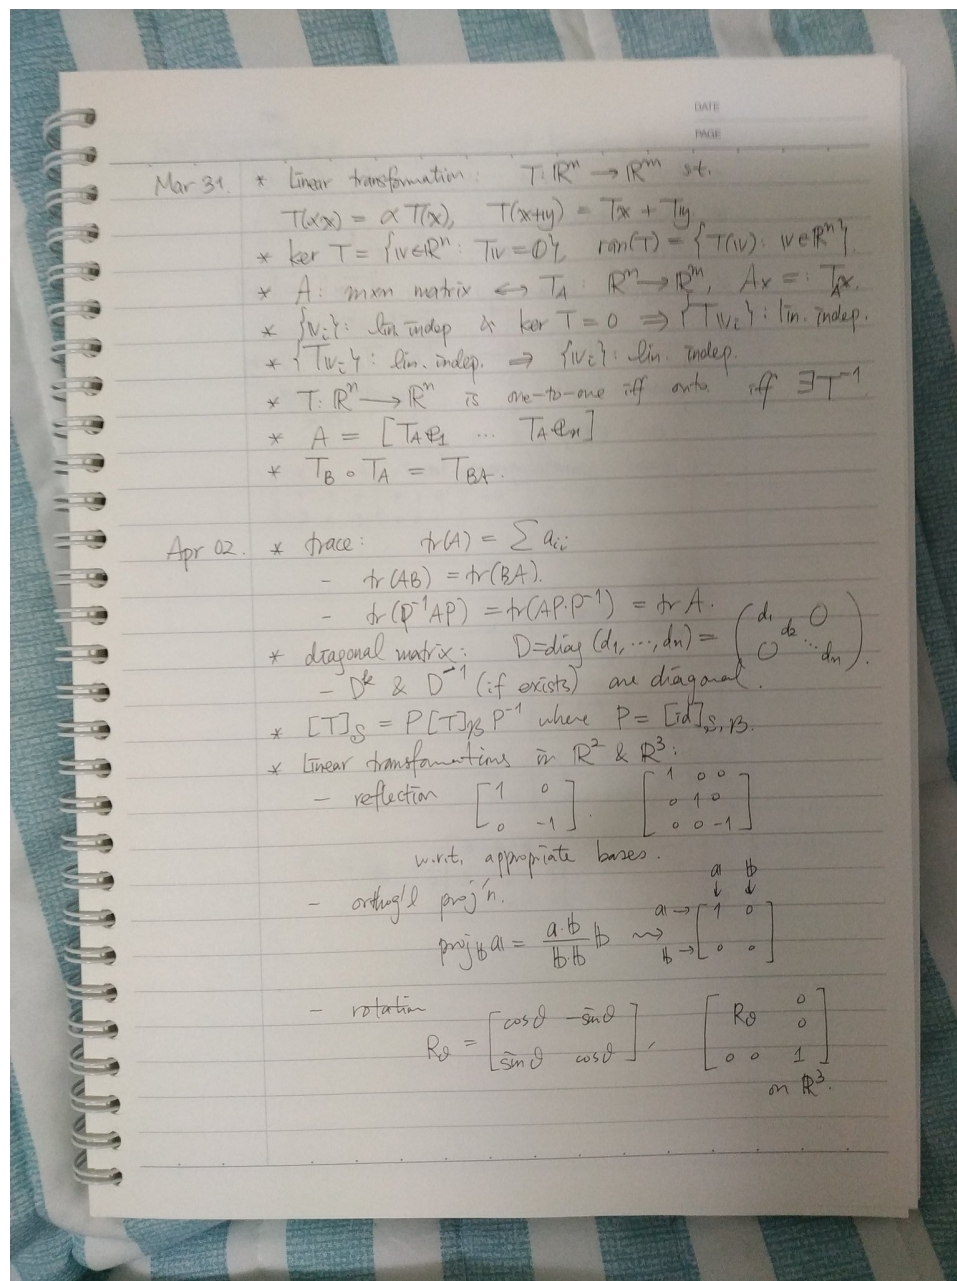 DATE
PAGE
Mar 31. * Linear transformation: T: ℝⁿ → ℝᵐ s.t.
T(αx) = αT(x), T(x+y) = Tx + Ty
* ker T = {v∈ℝⁿ: Tv = 0}, ran(T) = {T(v): v∈ℝⁿ}.
* A: m×n matrix ↔ T_A: ℝⁿ → ℝᵐ, Ax =: T_A x.
* {v_i}: lin indep & ker T = 0 ⇒ {Tv_i}: lin. indep.
* {Tv_i}: lin. indep. ⇒ {v_i}: lin. indep.
* T: ℝⁿ → ℝⁿ is one-to-one iff onto iff ∃T⁻¹
* A = [T_A e₁ ... T_A eₙ]
* T_B ∘ T_A = T_BA.
Apr 02. * trace: tr(A) = Σ a_ii
- tr(AB) = tr(BA).
- tr(P⁻¹AP) = tr(AP·P⁻¹) = tr A.
* diagonal matrix: D=diag(d₁, ..., dₙ) = (d₁ d₂ ⋱ dₙ 0 0).
- Dᵏ & D⁻¹ (if exists) are diagonal.
* [T]_S = P[T]_B P⁻¹ where P = [id]_S,B.
* Linear transformations in ℝ² & ℝ³:
- reflection [1 0; 0 -1]. [1 0 0; 0 1 0; 0 0 -1]
w.r.t. appropriate bases.
- orthog'l proj'n. a b
↓ ↓
proj_b a = (a·b)/(b·b) b ⇝ a→ b→ [1 0; 0 0]
- rotation
R_θ = [cosθ -sinθ; sinθ cosθ], [R_θ 0 0; 0 0 1]
on ℝ³.